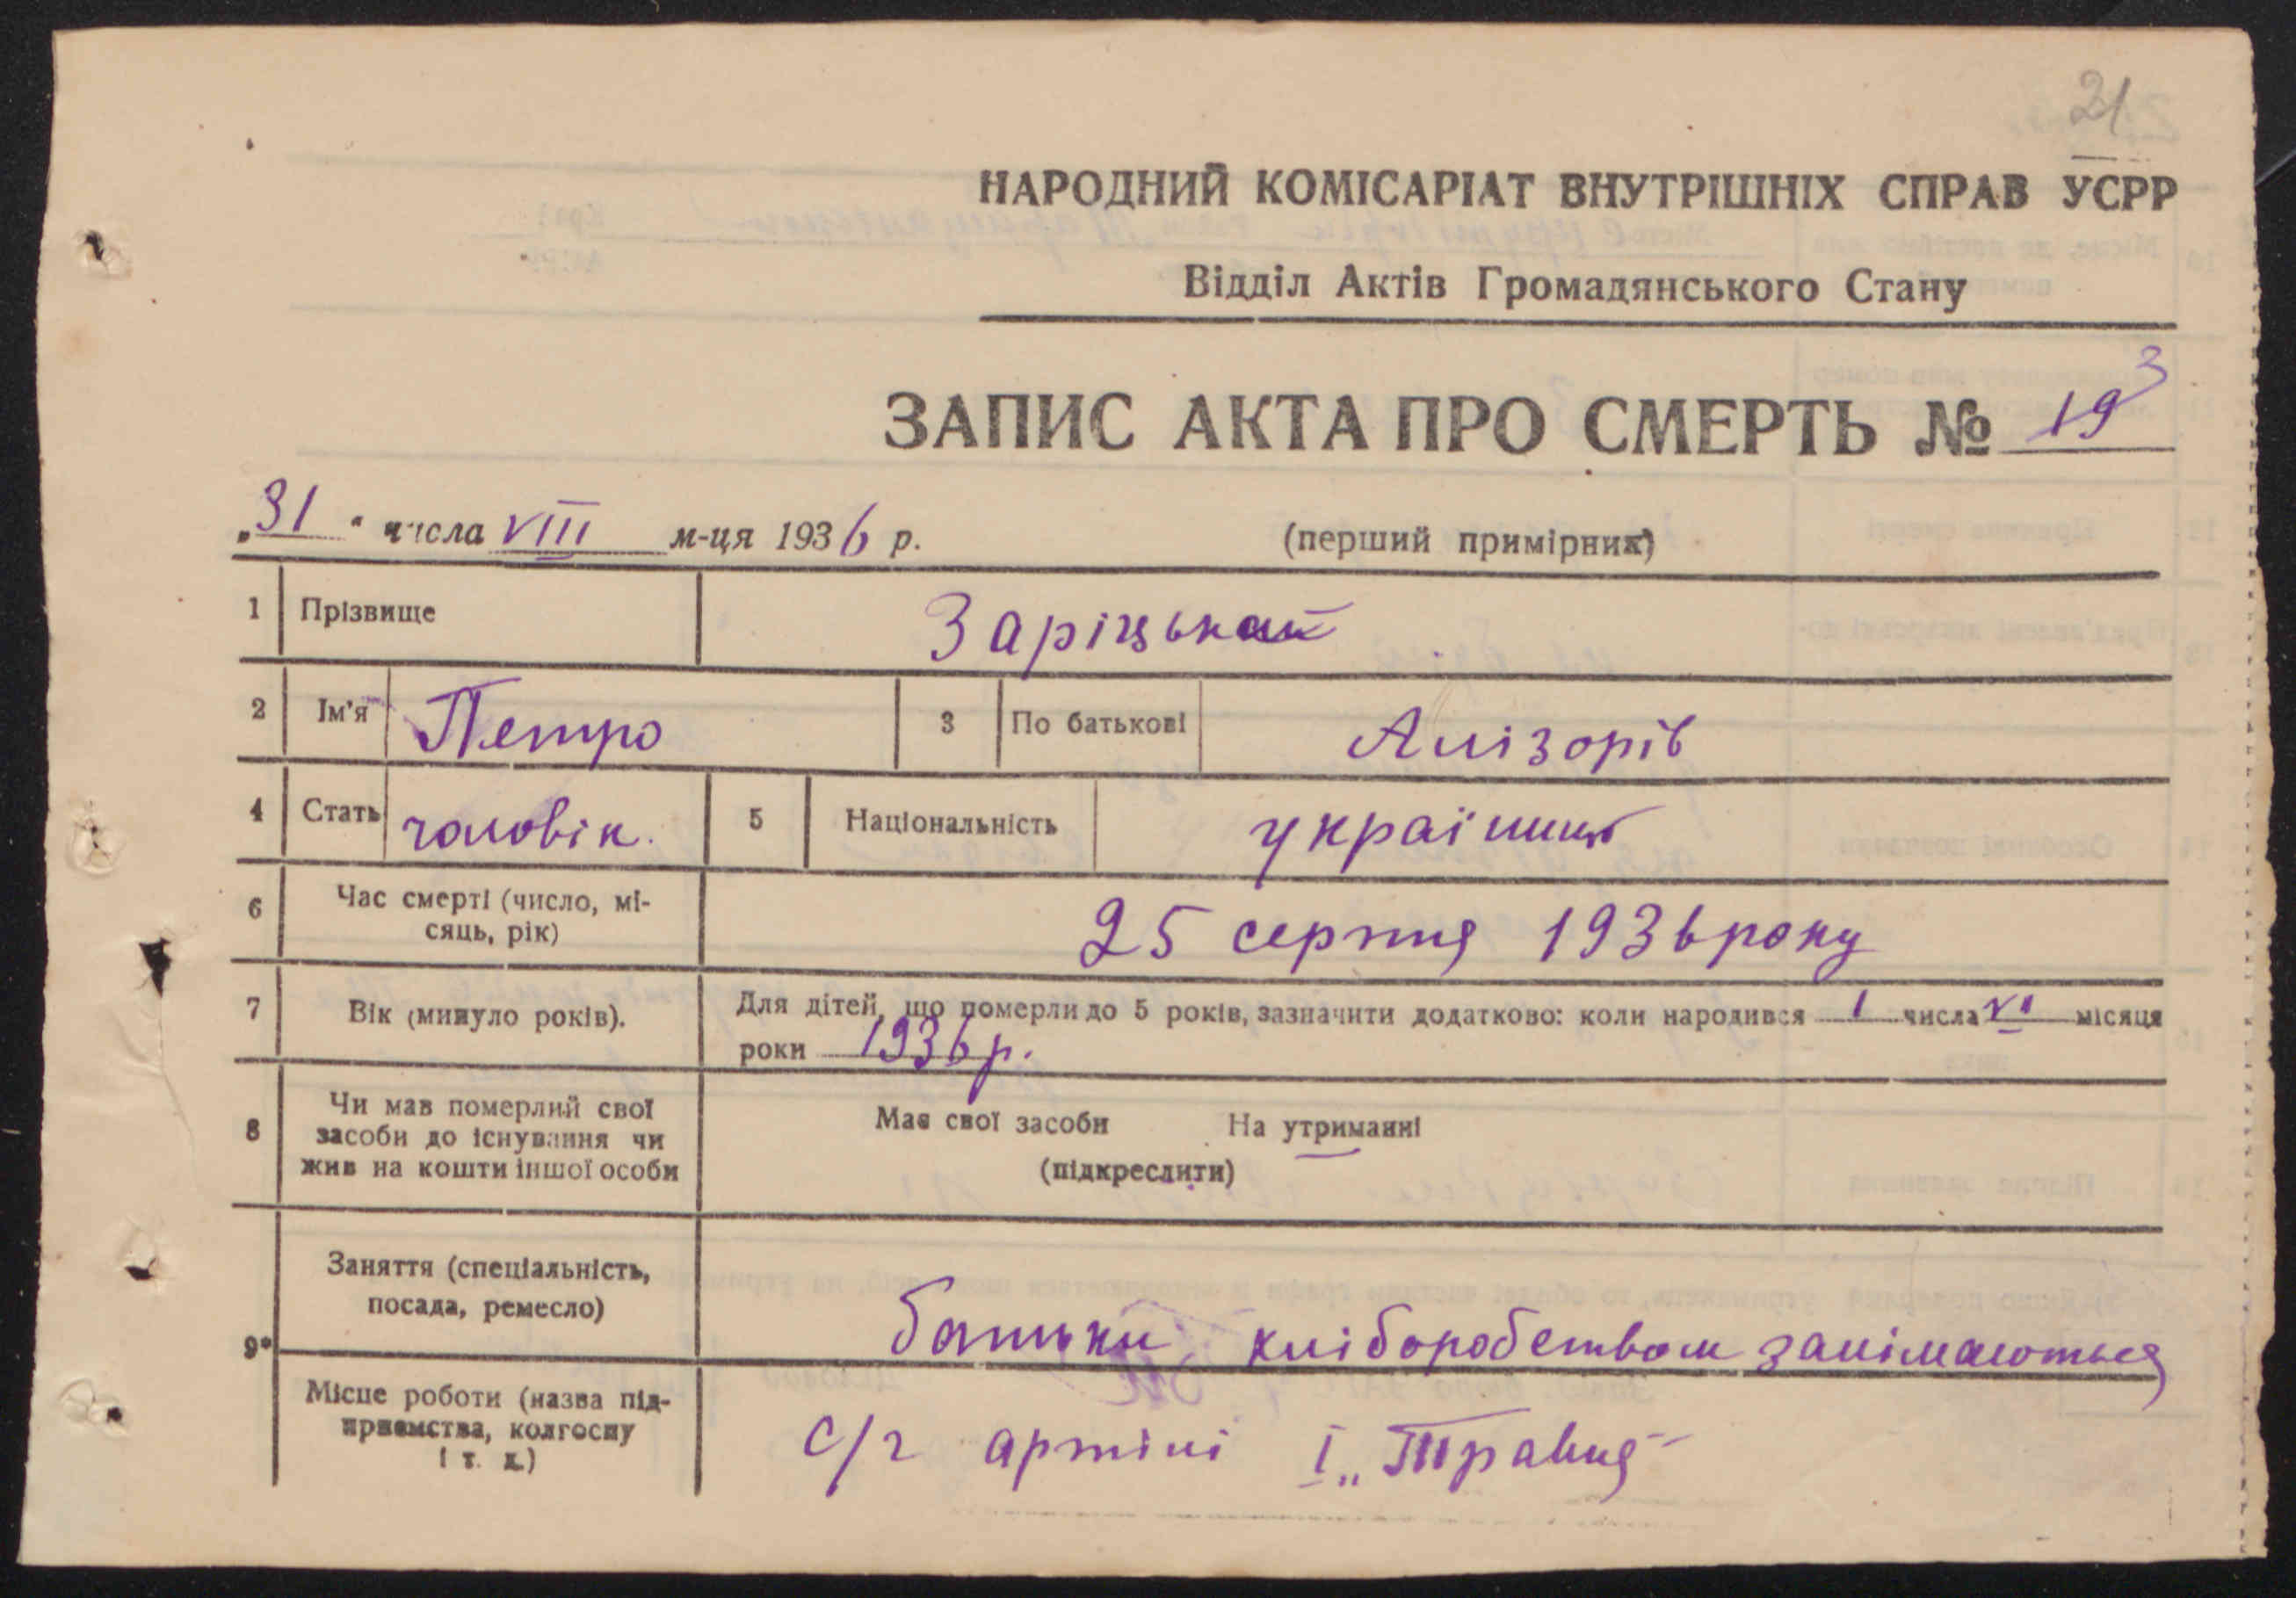 21
НАРОДНИЙ КОМІСАРІАТ ВНУТРІШНІХ СПРАВ УСРР
Відділ Актів Громадянського Стану
ЗАПИС АКТА ПРО СМЕРТЬ № 19 3
„31“ числа VIII м-ця 1936 р. (перший примірник)
1 Прізвище Заріцький
2 Ім'я Петро 3 По батькові Алізорів
4 Стать чоловік. 5 Національність українць
6 Час смерті (число, мі-
сяць, рік) 25 серпня 1936 року
7 Вік (минуло років). Для дітей, що померли до 5 років, зазначити додатково: коли народився 1 числа VI місяця
роки 1936 р.
8 Чи мав померлий свої
засоби до існування чи
жив на кошти іншої особи
Має свої засоби На утриманні
(підкреслити)
9* Заняття (спеціальність,
посада, ремесло) батьки хліборобством занімаються
Місце роботи (назва під-
приємства, колгоспу
і т. д.) с/г артілі І „Травня